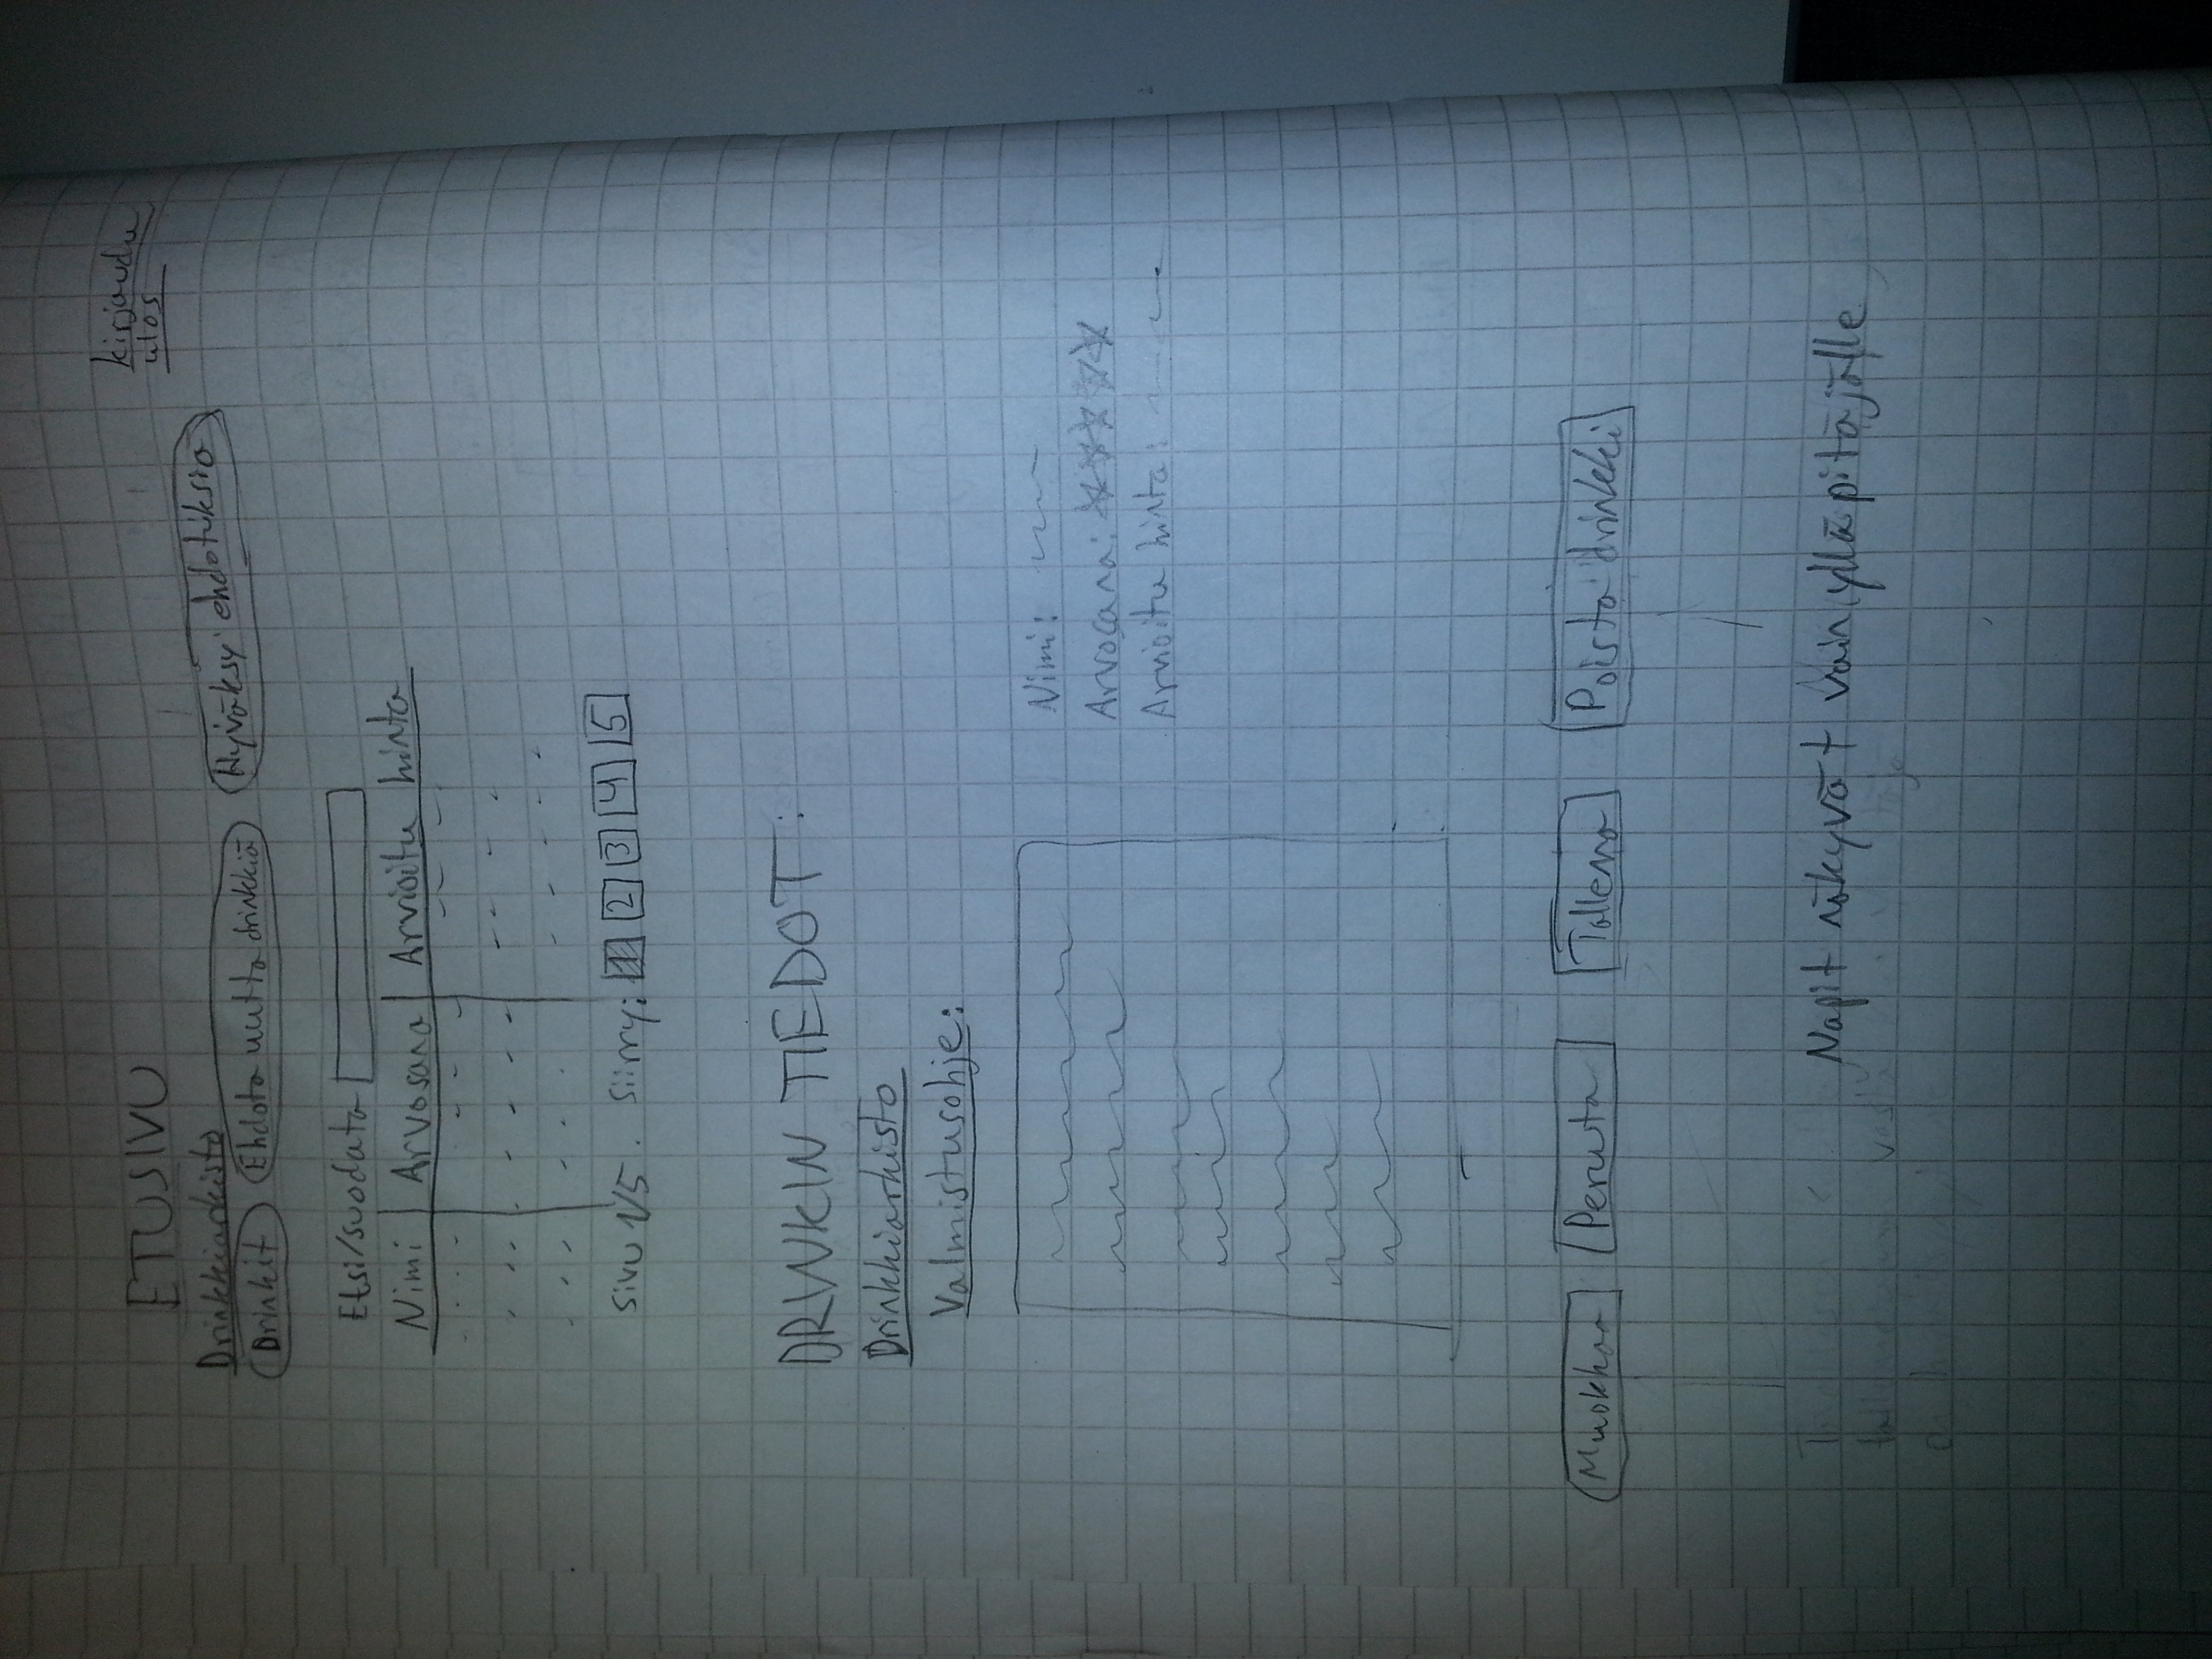 kirjaudu
ulos
ETUSIVU
Drinkkiarkisto
Drinkit Ehdota uutta drinkkiä Hyväksy ehdotuksia
Etsi/suodata
Nimi Arvosana Arvioitu hinta
Sivu 1/5. Siirry: 1 2 3 4 5
DRINKIN TIEDOT:
Drinkkiarkisto
Valmistusohje:
Nimi:
Arvosana:
Arvioitu hinta:
Muokkaa Peruuta Tallenna Poista drinkki
Napit näkyvät vain ylläpitäjälle